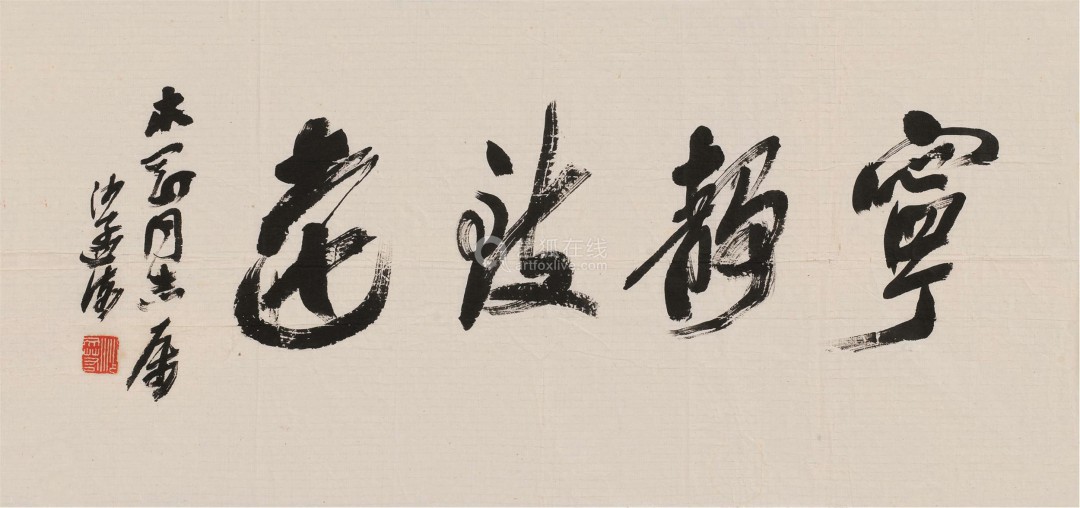 寧靜致遠
同志属
沙孟海
狐在线
artfoxlive.com